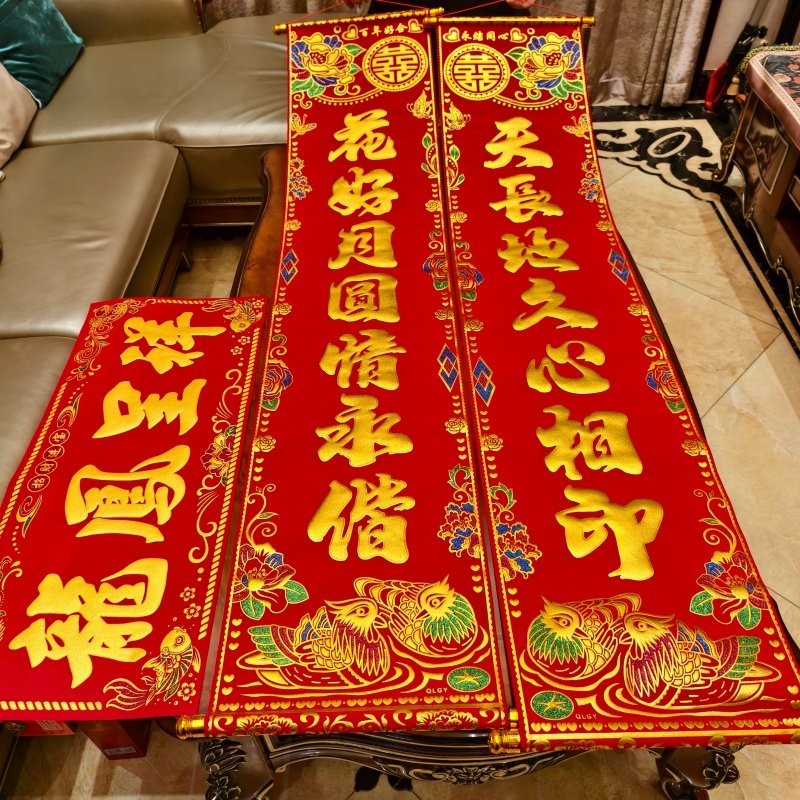 百年好合
囍
花好月圓情永偕
QLGY
永結同心
囍
天長地久心相印
QLGY
龍鳳呈祥